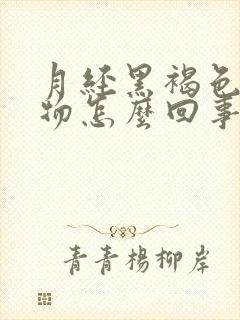 月经黑褐色
物怎麼回事
青青楊柳岸